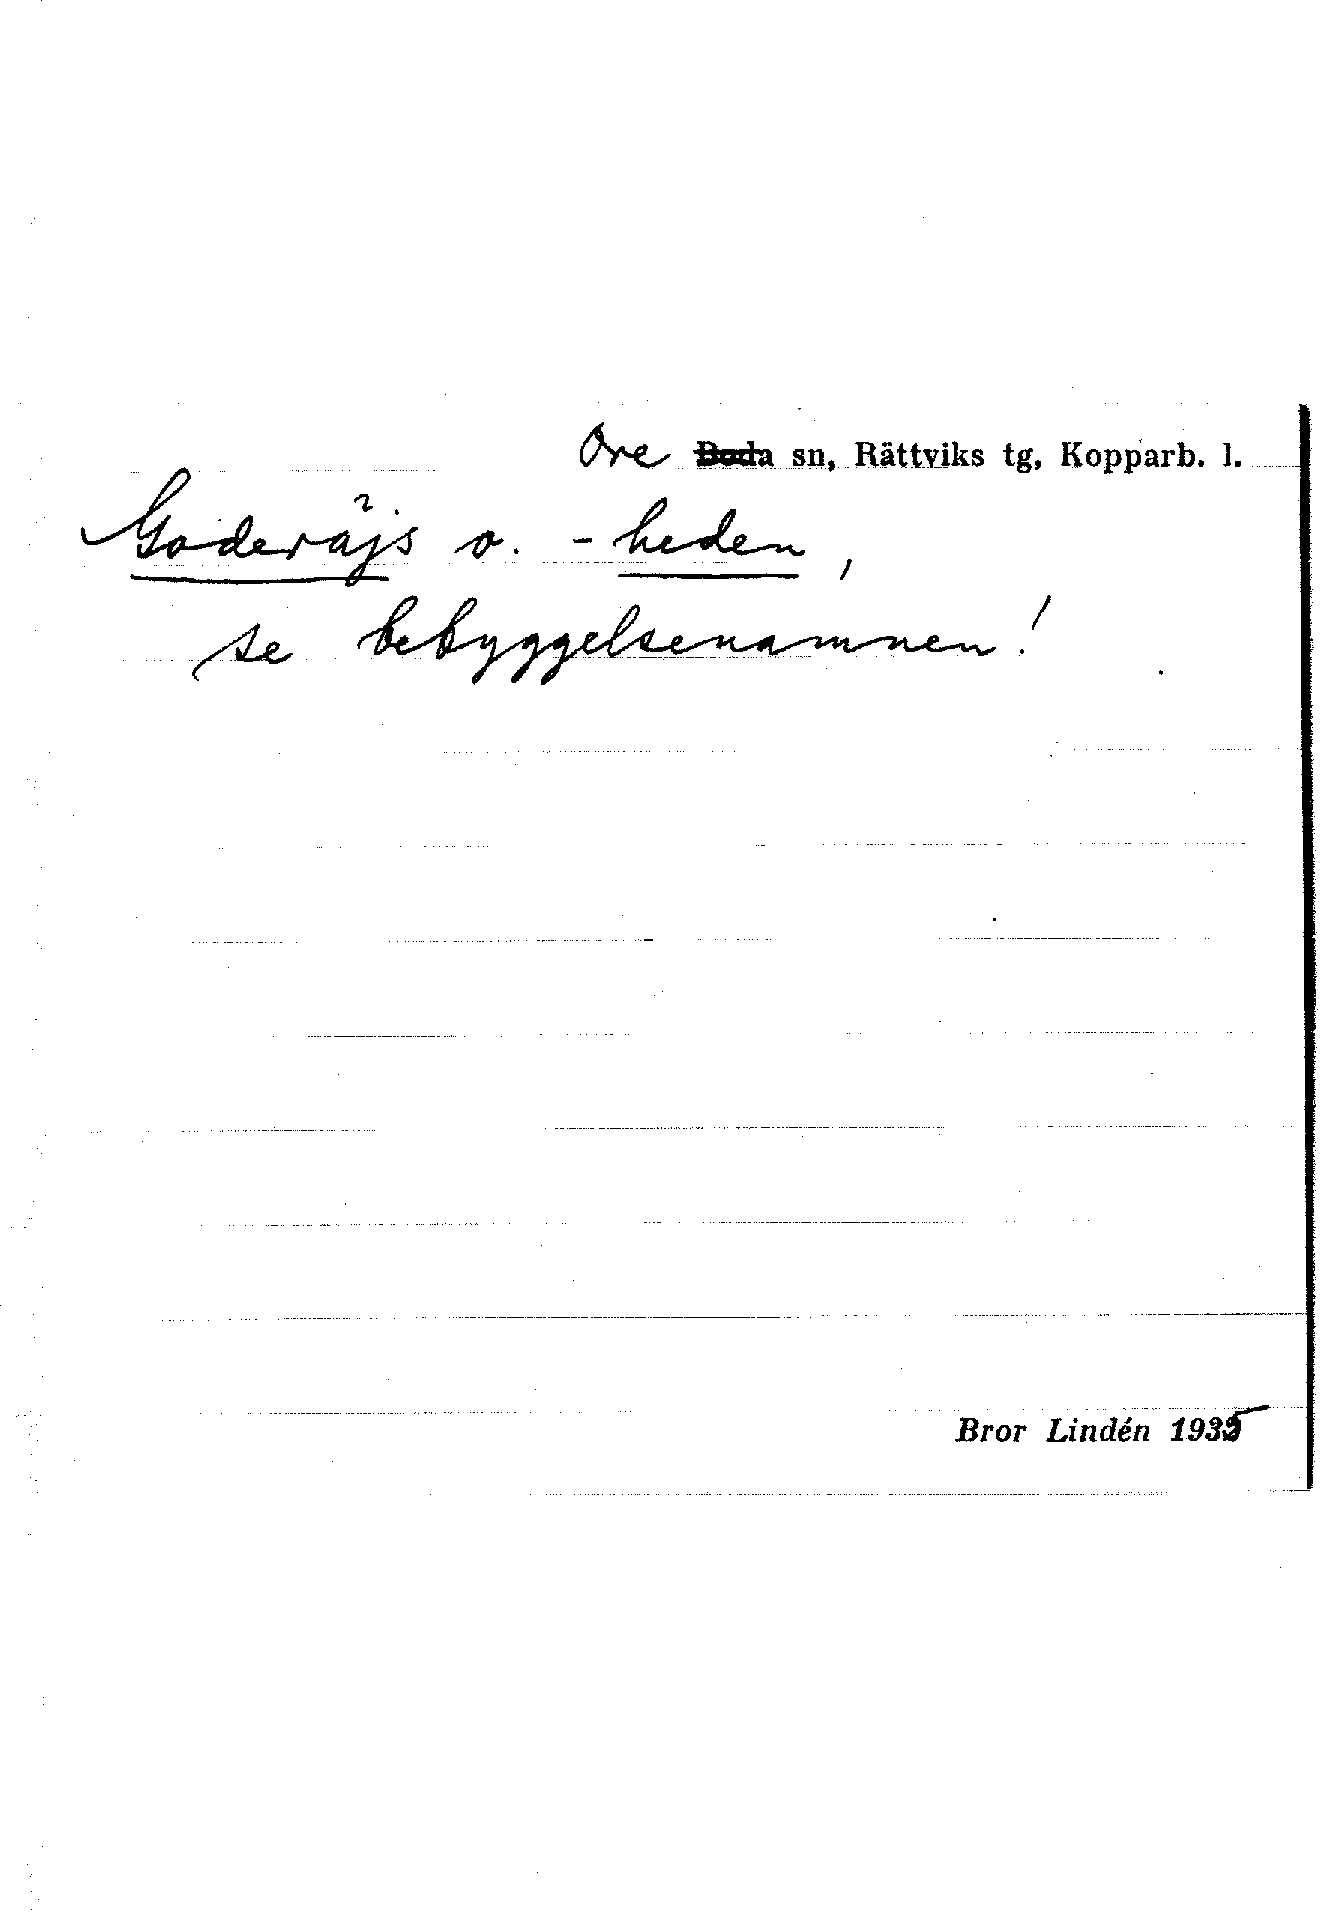 Ore Boda sn, Rättviks tg, Kopparb. l.
Goderåjs o. -heden,
se bebyggelsenamnen!
Bror Lindén 1935